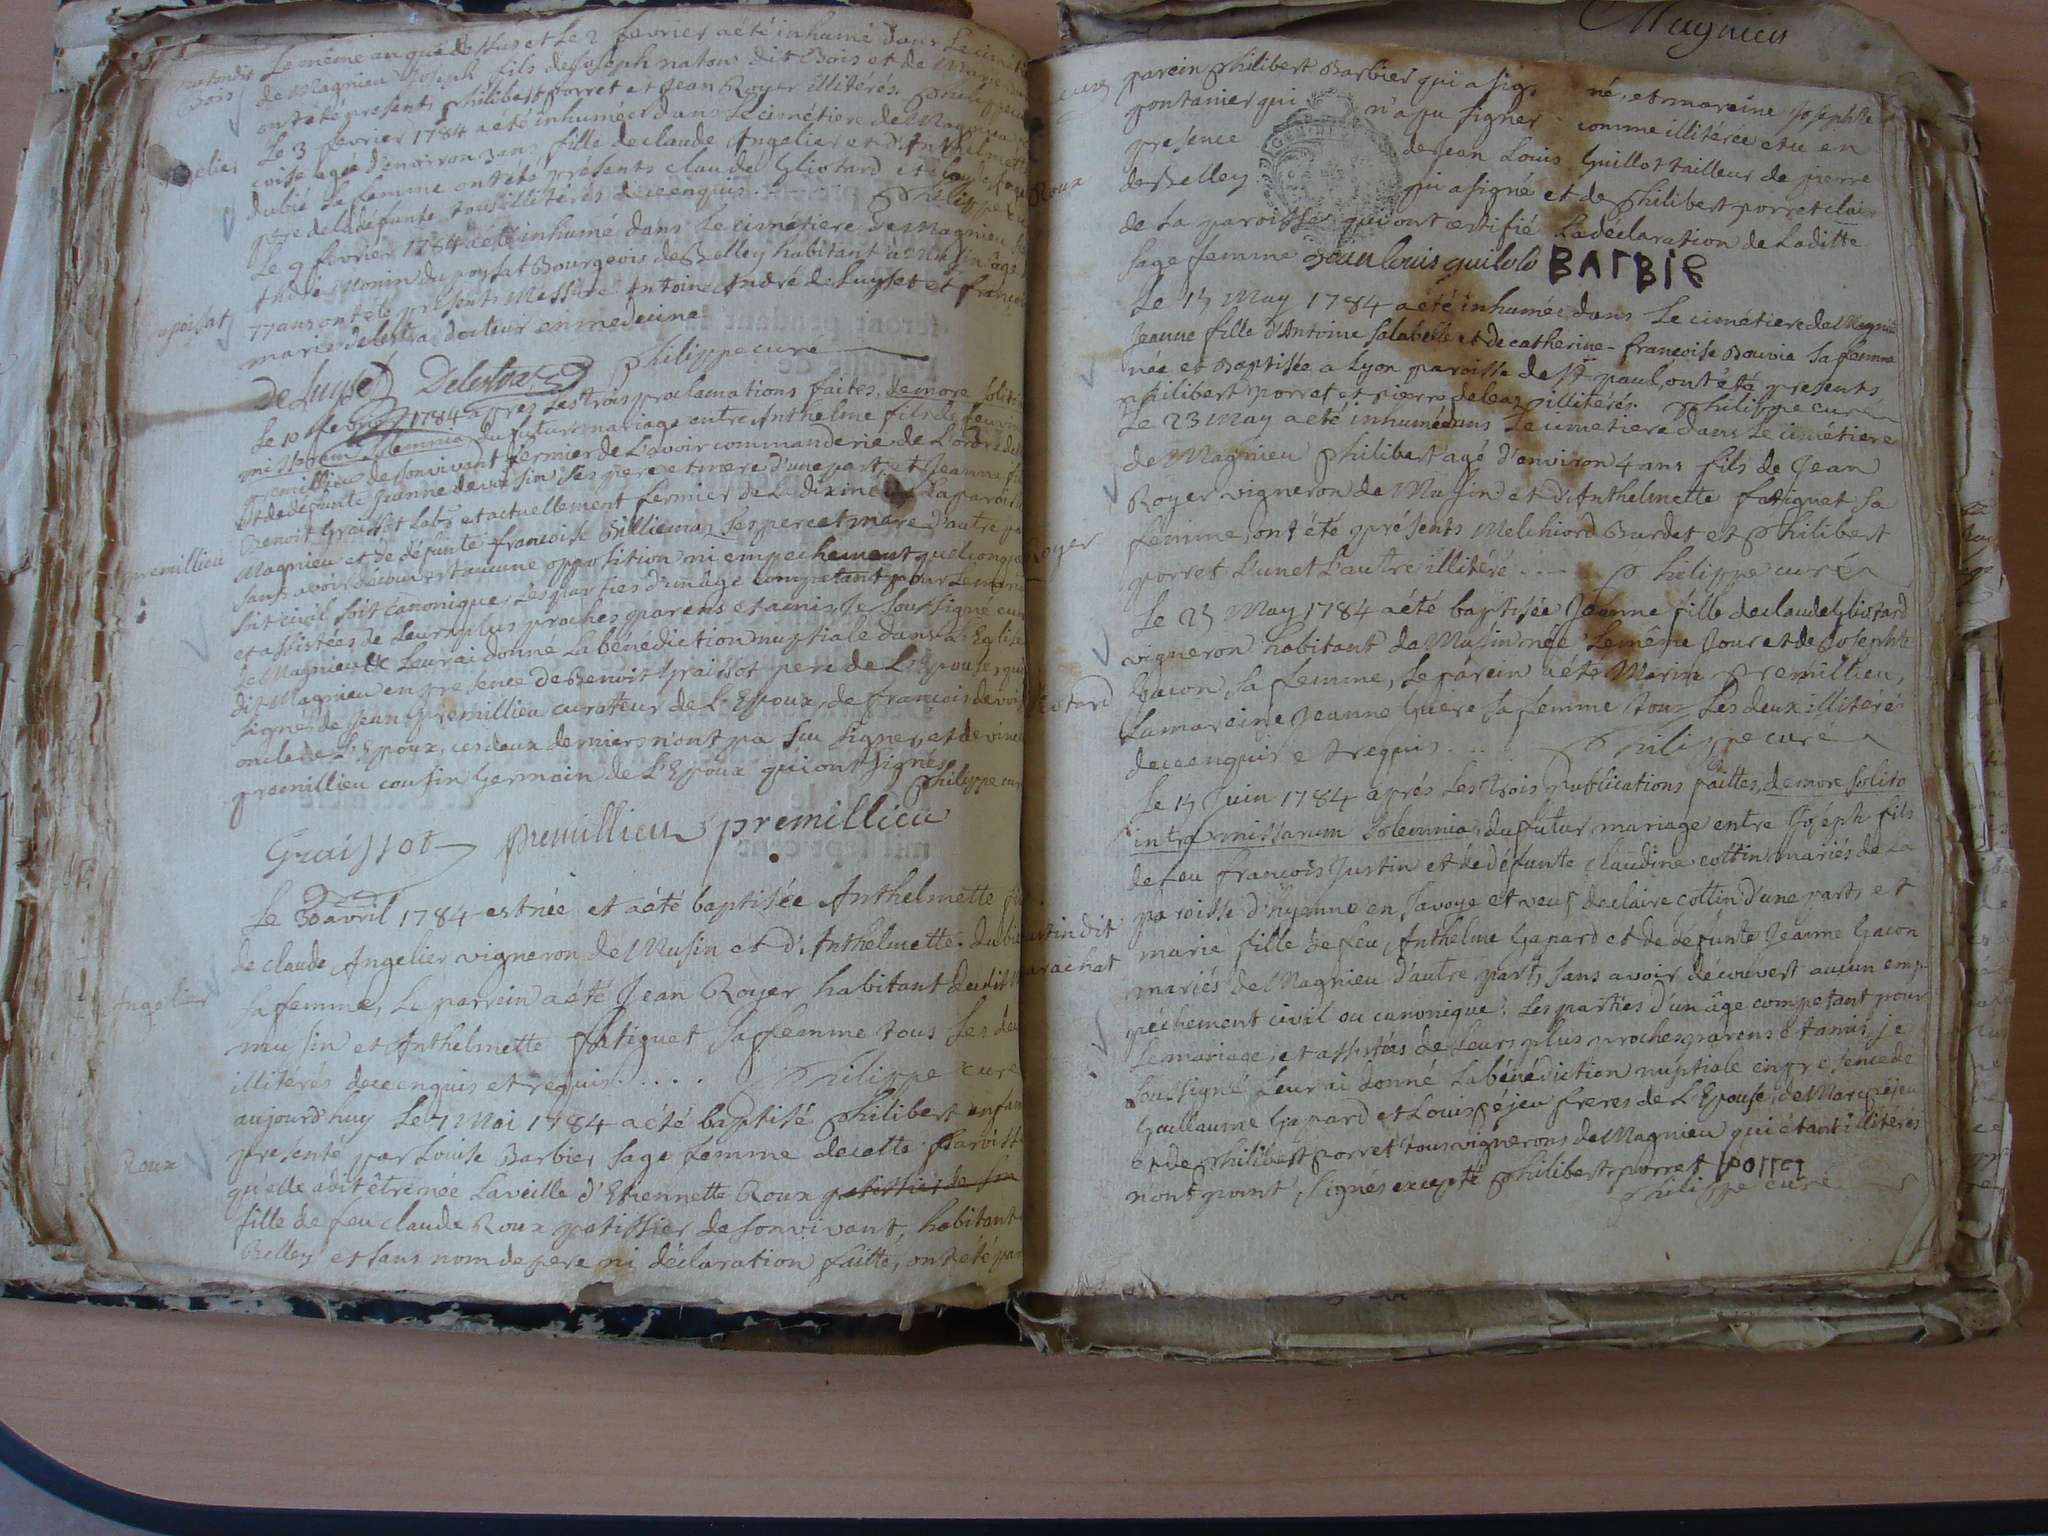 Le même an que dessus et Le 2 fevrier a été inhumé dans Le
de Magnieu Joseph fils de Joseph naton dit Bois et de Marie
ont été presents philibert porret et Jean Royer illitérés. philippe
Le 3 fevrier 1784 a été inhumée dans Le cimétiere de Magnieu
agée d'environ 3 ans fille de claude Angelier et d'Anthelmette
dubié sa femme ont été présents claude Gliotard et
pere de la défunte tous illitérés de ce enquis. philippe
Le 9 fevrier 1784 a été inhumé dans Le cimétiere de Magnieu
André Monin du poysat Bourgeois de Belley habitant à Musin agé
77 ans ont été présents Messire Antoine André de Luyset et françois
marie delestra docteur en medecine
De Luyset Delestra philippe curé
Le 10 1784 apres Les trois proclamations faites, de more solito
missarum solemnia du futur mariage entre Anthelme fils de feu
premillieu de son vivant fermier de Lavoir commanderie de L'ordre de
Et de défunte Jeanne de voisin ses pere et mere d'une part, et Jeanne
Benoit Graissot Labr et actuellement fermier de La dixme La paroisse
Magnieu et de défunte françoise Billiema ses pere et mere d'autre
sans avoir découvert aucune opposition ni empechement quelconque
soit civil soit canonique, Les parties d'un age competant pour Le
et assistées de Leurs plus proches parens et amis Je soussigné curé
de Magnieu Leur ai donné La bénédiction nuptiale dans L'Eglise
dit Magnieu en presence de Benoit Graissot pere de L'Epouse, qui
signé de Jean premillieu curateur de L'Epoux, de francois de
oncle de L'Epoux, ces deux derniers n'ont pa sçu signer, et de
premillieu cousin Germain de L'Epoux qui ont signés
philippe curé
Graissot premillieu premillieu
Le 30 avril 1784 est née et a été baptisée Anthelmette
de claude Angelier vigneron de Musin et d'Anthelmette dubié
sa femme, Le parrein a été Jean Royer habitant dudit
musin et Anthelmette fatiguet sa femme tous Les deux
illitérés de ce enquis et requis..... philippe curé
aujourd'huy Le 7 Mai 1784 a été baptisé philibert enfan
présenté par Louise Barbier sage femme de cette paroisse
qu'elle a dit être née La veille d'Etiennette Roux patissier de son
fille de feu claude Roux patissier de son vivant, habitant
Belley et sans nom de pere ni déclaration faitte, ont été
poisat
premillieu
Angelier
Roux
Magnieu
parein philibert Barbier qui a signé, et mareine Josephte
pontanier qui n'a pu signer comme illiterée etu en
presence de Jean Louis Guillot tailleur de pierre
de Belley qui a signé et de philibert porret clair
de La paroisse qui ont certifié La déclaration de La ditte
sage femme Jean louis guiloló BARBIE
Le 15 May 1784 a été inhumée dans Le cimétiere de Magnieu
Jeanne fille d'Antoine Salabelle et de catherine-françoise Bouvia sa femme
née et Baptisée a Lyon paroisse de St paul, ont été presents
philibert porret et pierre illitérés. philippe curé
Le 23 May a été inhumé dans Le cimetiere dans Le cimétiere
de Magnieu philibert agé d'environ 4 ans fils de Jean
Royer vigneron de Musin et d'Anthelmette fatiguet sa
femme, ont été présents Melchiord Burdet et philibert
porret L'un et L'autre illitéré.... philippe curé
Le 25 May 1784 a été baptisée Jeanne fille de claude Gliotard
vigneron habitant de Musin née Le même Jour et de Josephte
Gacon sa femme, Le parein a été Marin premillieu,
La mareine Jeanne Guere sa femme tous Les deux illitérés
de ce enquis et requis... philippe curé
Le 15 Juin 1784 aprés Les trois publications faittes, de more solito
intra missarum solemnia, du futur mariage entre Joseph fils
de feu françois Justin et de défunte claudine cottin mariés de La
paroisse d'hyenne en Savoye et veuf de claire cottin d'une part, et
marie fille de feu Anthelme Gapard et de défunte Jeanne Gacon
mariés de Magnieu d'autre part, sans avoir découvert aucun em-
pêchement civil ou canonique: Les parties d'un âge competant pour
Le mariage, et assistées de Leurs plus proches parens et amis, je
soussigné Leur ai donné La bénédiction nuptiale en presence de
Guillaume Gapard et Louis péjeu freres de L'Epouse, de Marc péjeu
et de philibert porret tous vignerons de Magnieu qui étant illitérés
n'ont point signés excepté philibert porret porret
philippe curé
Roux
Royer
Gliotard
Justin dit